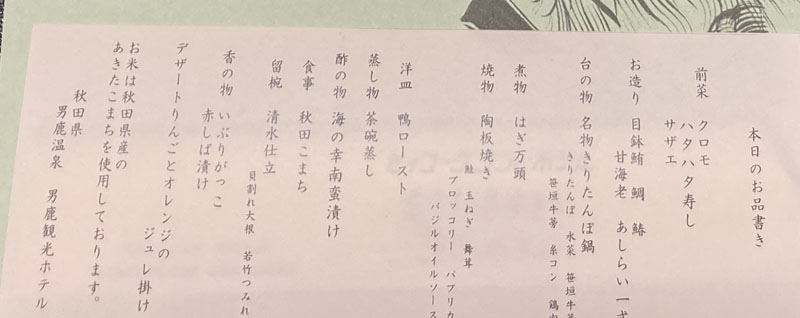 本日のお品書き
前菜 クロモ
ハタハタ寿し
サザエ
お造り 目鉢鮪 鯛 鰆
甘海老 あしらい一式
台の物 名物きりたんぽ鍋
きりたんぽ 水菜 笹垣牛蒡
笹垣牛蒡 糸コン 鶏肉
煮物 はぎ万頭
焼物 陶板焼き
鮭 玉ねぎ 舞茸
ブロッコリー パプリカ
バジルオイルソース
洋皿 鴨ロースト
蒸し物 茶碗蒸し
酢の物 海の幸南蛮漬け
食事 秋田こまち
留椀 清水仕立
貝割れ大根 若竹つみれ
香の物 いぶりがっこ
赤しば漬け
デザートりんごとオレンジの
ジュレ掛け
お米は秋田県産の
あきたこまちを使用しております。
秋田県
男鹿温泉 男鹿観光ホテル